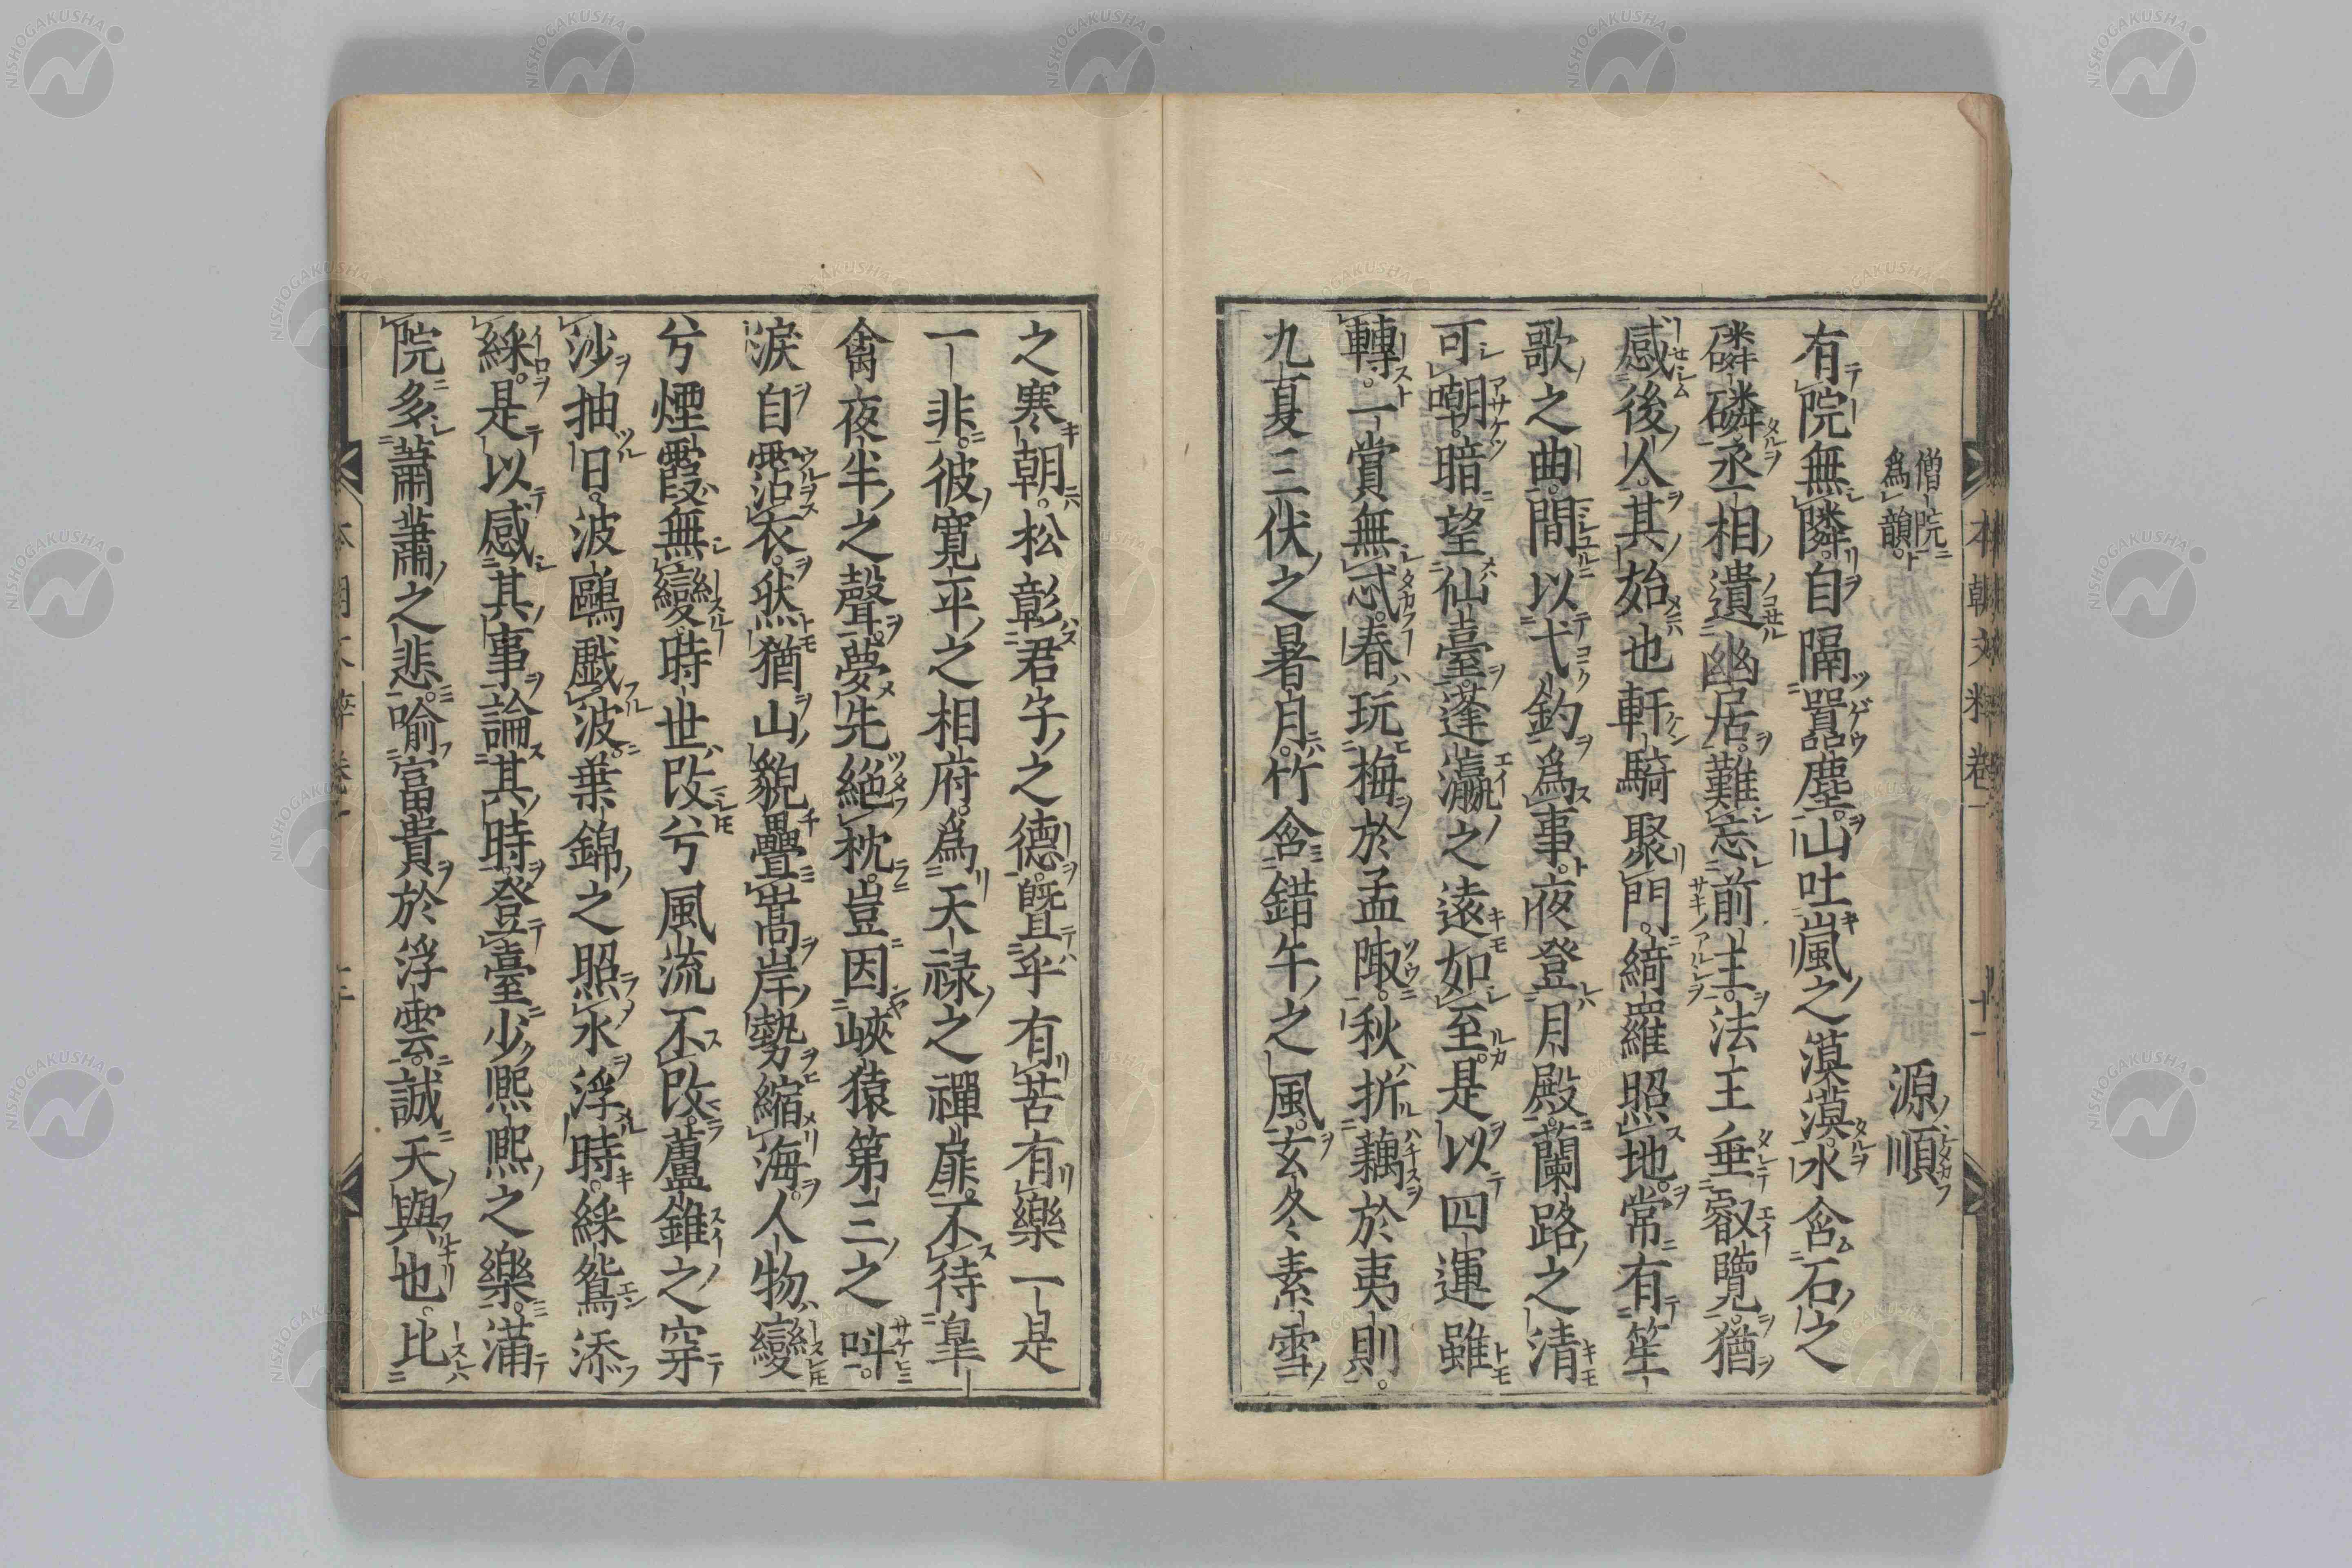 僧院爲韻
源順
有院無隣。自隔囂塵。山吐嵐之漠漠。水含石之
磷磷。丞相遺幽居。難忘前主。法王垂叡覽。猶
感後人。其始也軒騎聚門。綺羅照地。常有笙
歌之曲。間以弋釣爲事。夜登月殿。蘭路之清
可嘲。暗望仙臺。蓬瀛之遠如至。是以四運雖
轉。一賞無忒。春玩梅於孟陬。秋折藕於夷則。
九夏三伏之暑月。竹含錯午之風。玄冬素雪
之寒朝。松彰君子之德。曁乎有苦有樂一是
一非。彼寛平之相府。爲天禄之禪扉。不待皐
禽夜半之聲。夢先絕枕。豈因峽猿第三之叫。
淚自霑衣。然猶山貌疊嵩岸勢縮海。人物變
兮煙霞無變。時世改兮風流不改。蘆錐之穿
沙抽日。波鷗戲波。葉錦之照水浮時。綵鴛添
綵。是以感其事論其時。登臺少熙熙之樂。滿
院多蕭蕭之悲。喻富貴於浮雲。誠天與也。比
本朝文粹卷一
十二